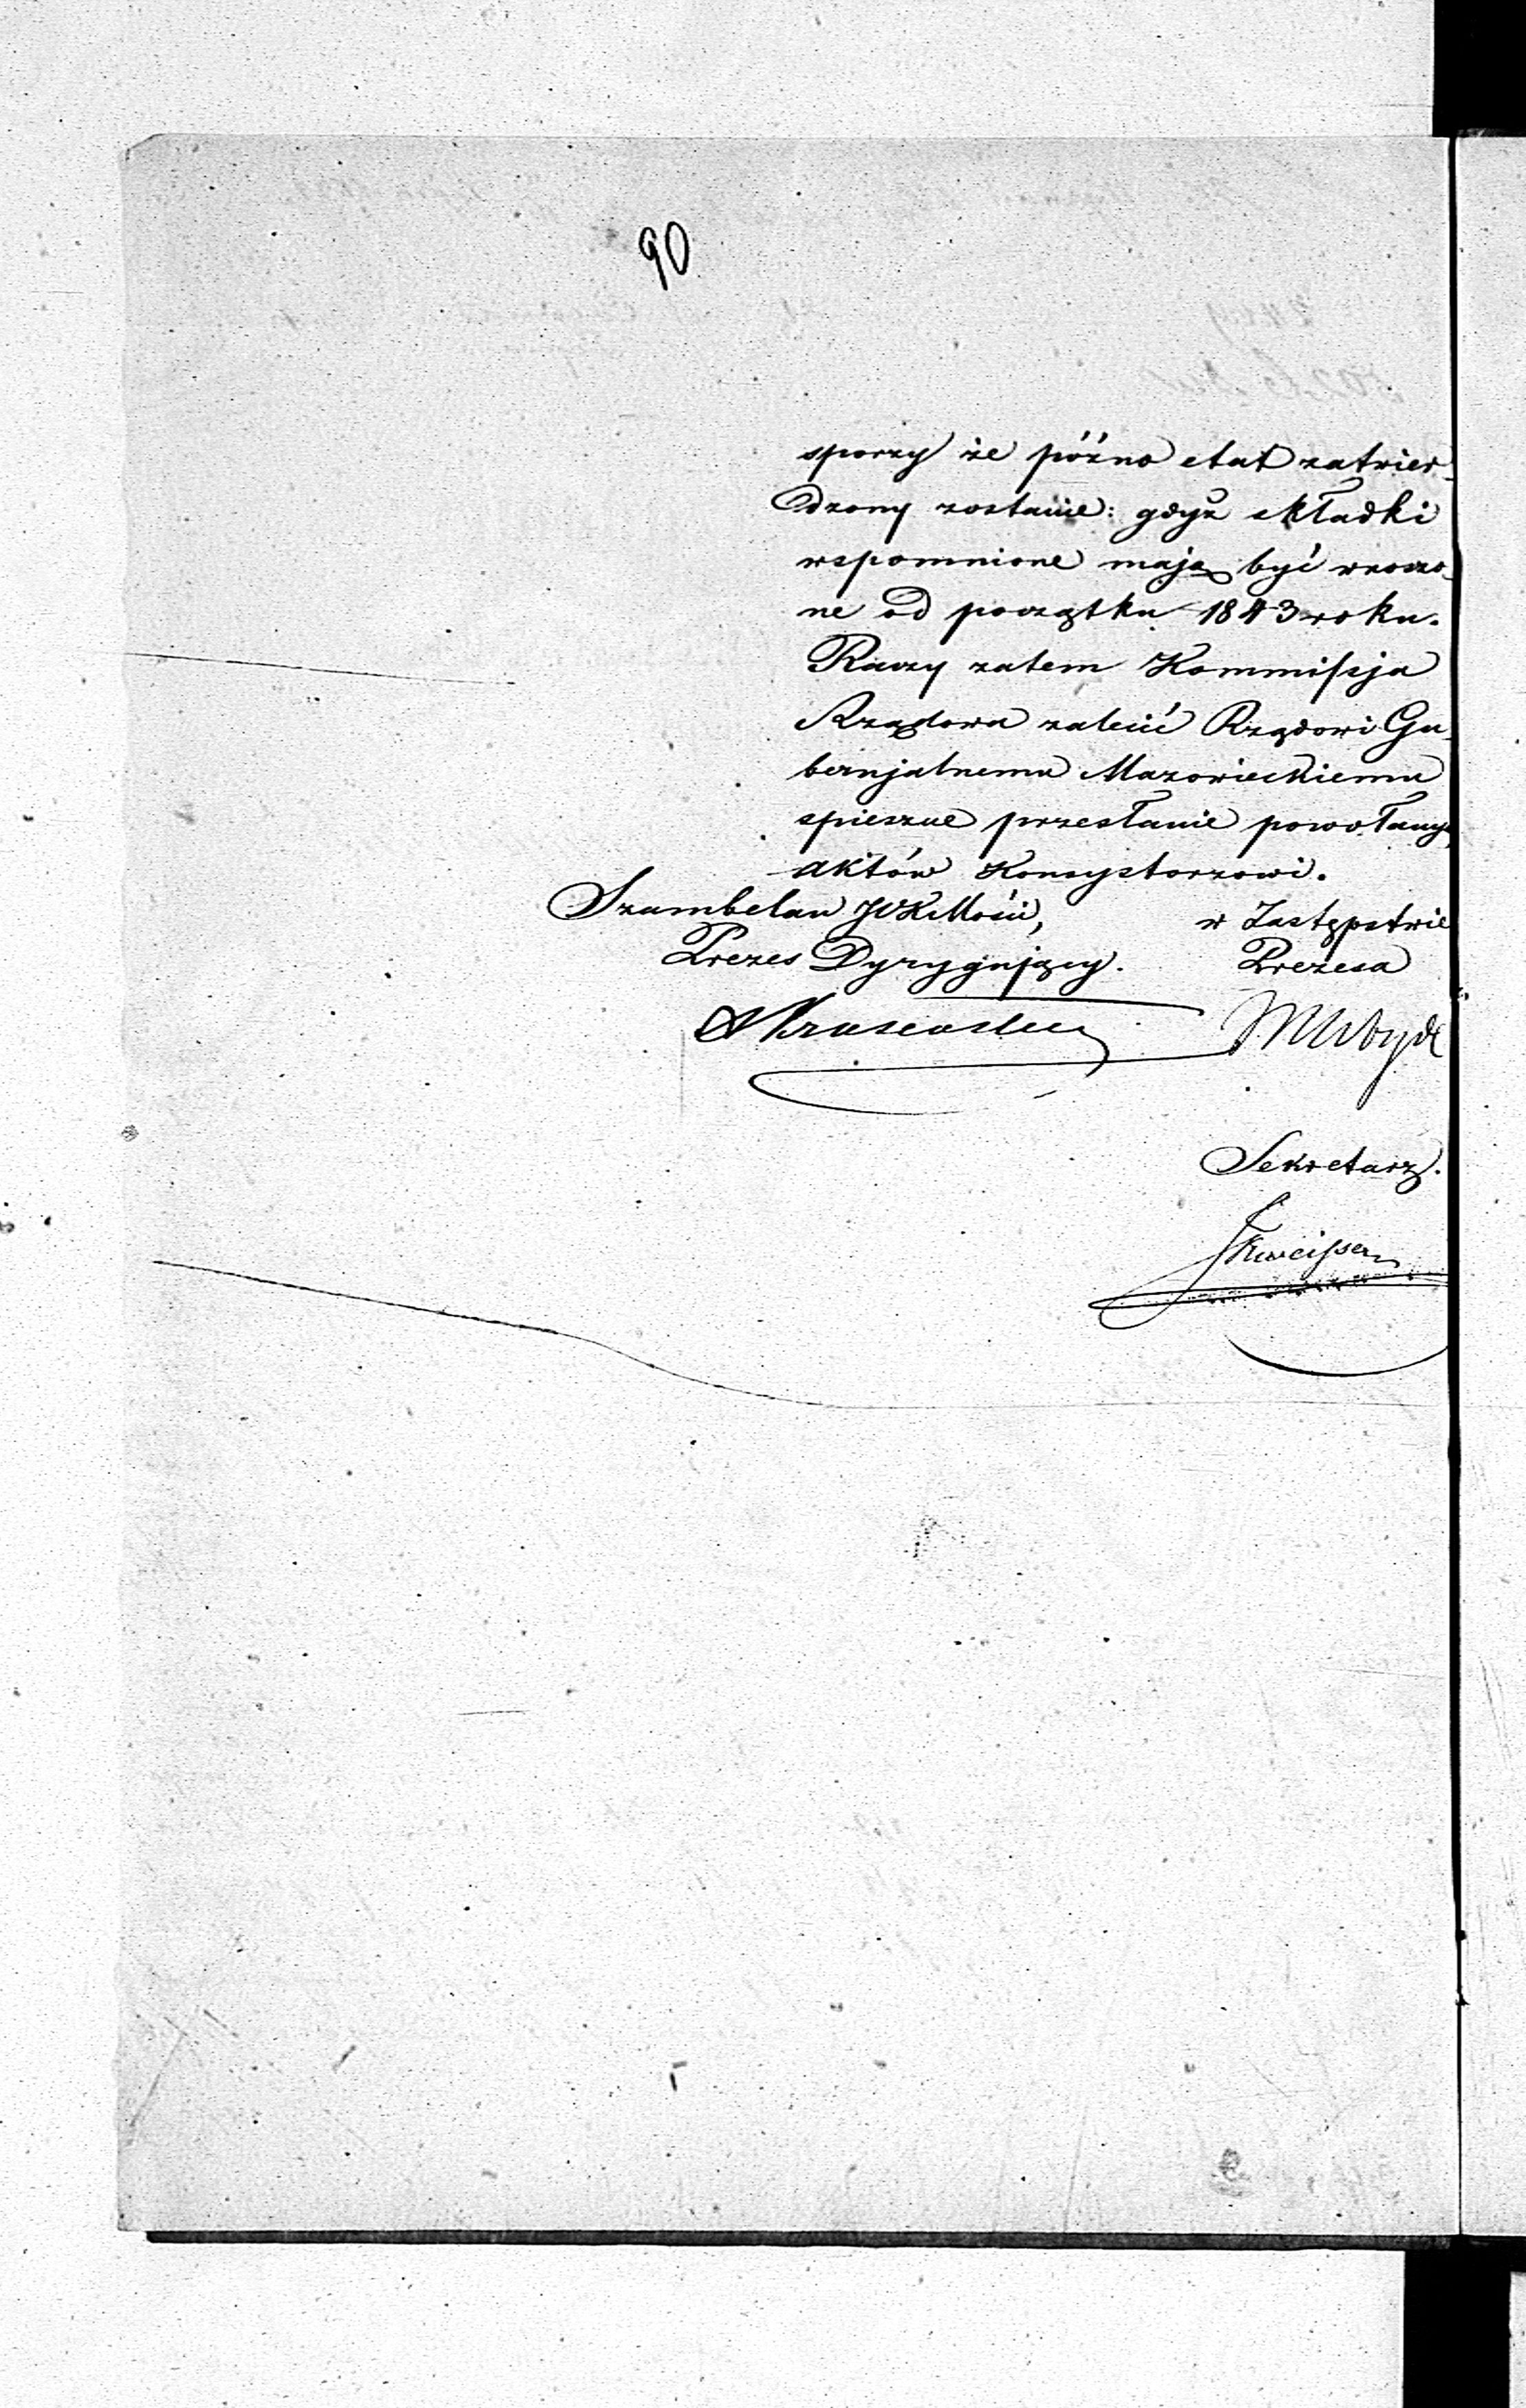 90
sporzy że późno etat zatwier-
dzony zostanie: gdyż składki
wspomnione mają być wnoszo-
ne od początku 1843 roku.
Raczy zatem Kommissja
Rządowa zalecić Rządowi Gu-
bernjalnemu Mazowieckiemu
spieszne przesłanie powołanych
aktów Konsystorzowi.
Szambelan JCKMości, w Zastępstwie
Prezes Dyrygujący. Prezesa
Sekretarz.